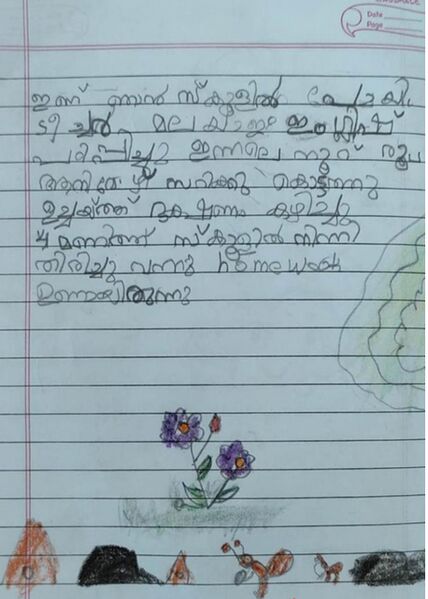 Date
Page
ഇന്ന് ഞാൻ സ്കൂളിൽ പോയി.
ടീച്ചർ മലയാളം ഇംഗ്ലീഷ്
പഠിപ്പിച്ചു ഇന്നലെ നൂറ് രൂപ
കൊടുത്തു
ഉച്ചയ്ക്ക് ഭക്ഷണം കഴിച്ചു
4 മണിക്ക് സ്കൂളിൽ നിന്ന്
തിരിച്ചു വന്നു home work
ഉണ്ടായിരുന്നു